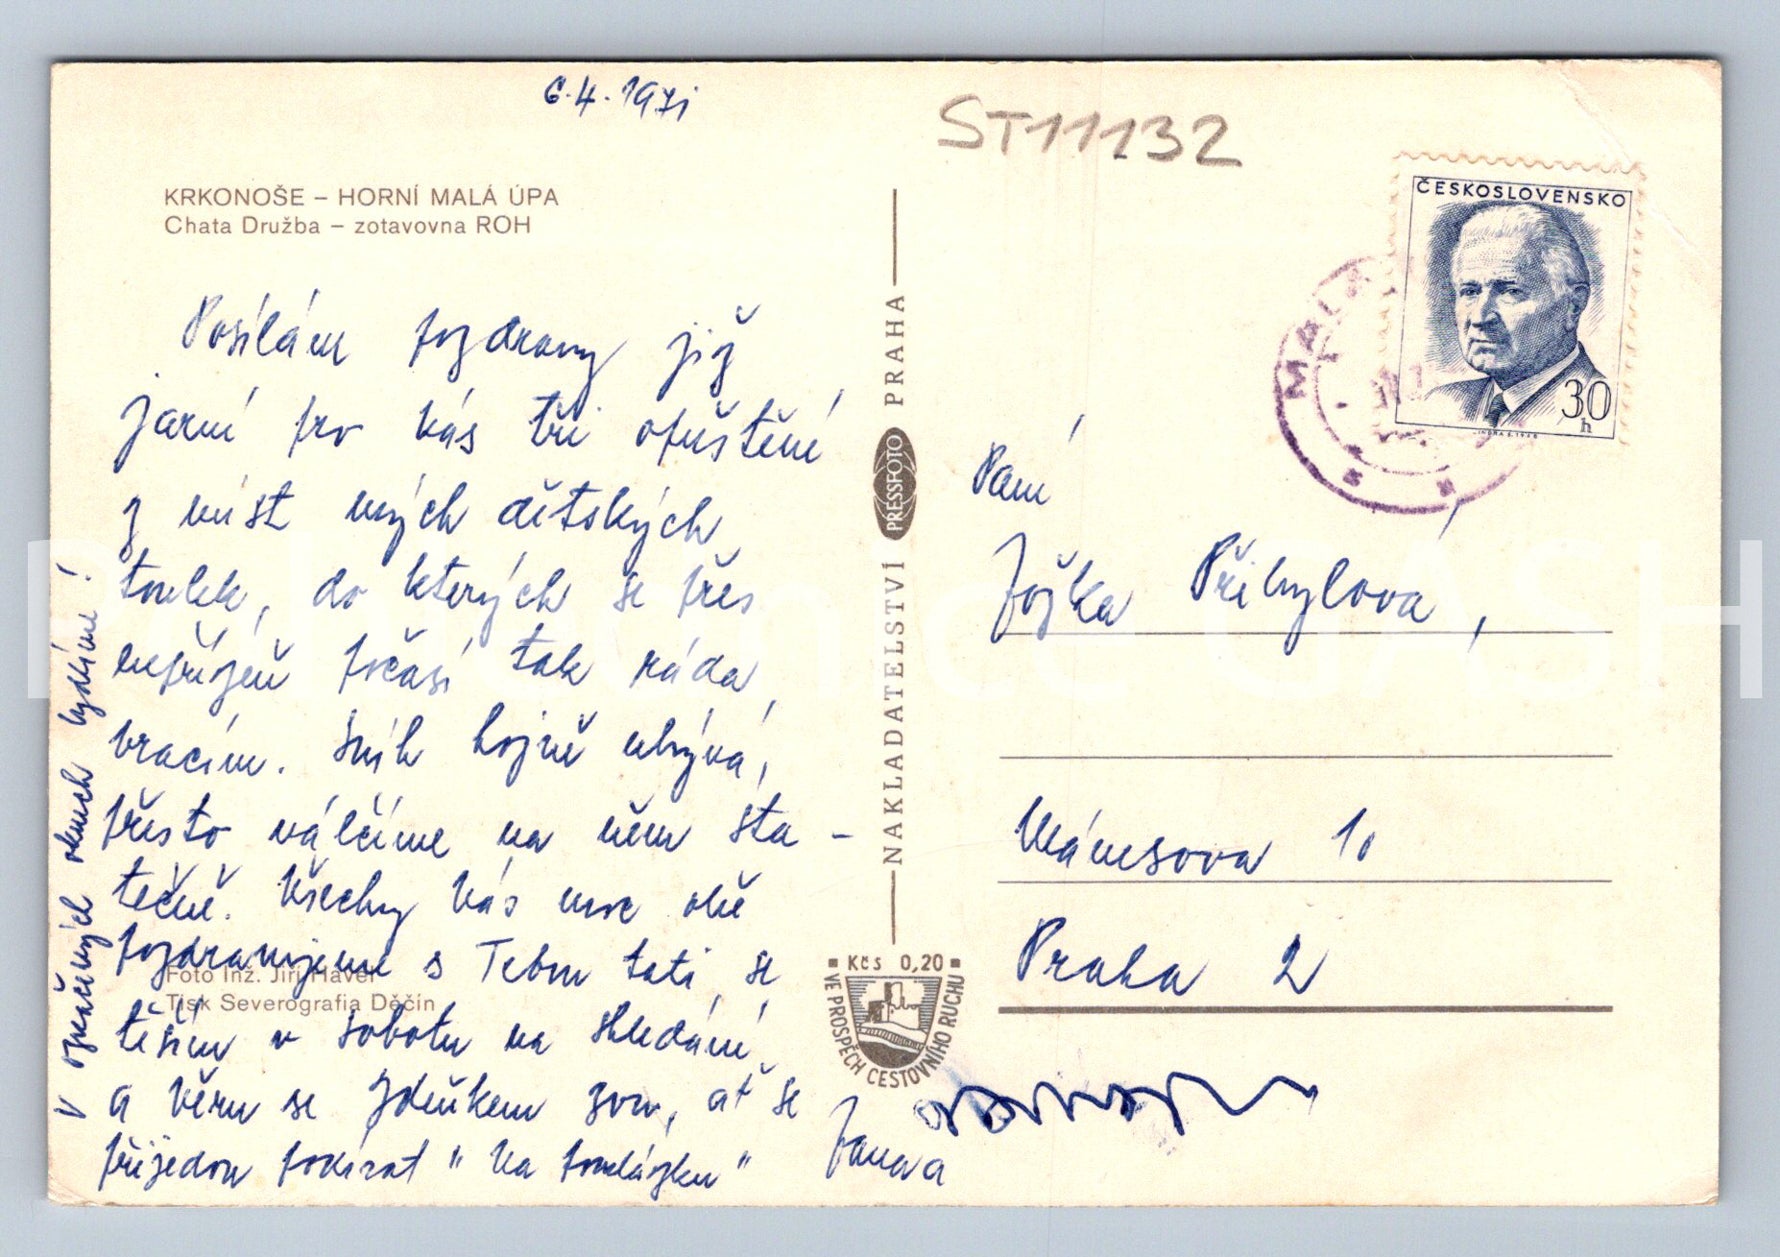 6.4.1971
ST11132
KRKONOŠE – HORNÍ MALÁ ÚPA
Chata Družba – zotavovna ROH
Posílám pozdravy již
jarní pro Vás tři opuštěné
z míst mých dětských
toulek, do kterých se přes
nepřízeň počasí tak ráda
vracím. Sníh hojně ubývá,
přesto válčíme na něm sta-
tečně. Všechny Vás moc obě
pozdravujeme s Tebou tati se
těším v sobotu na shledání
a Věru se Zdeňkem zvu, ať se
přijedou podívat "Na
v označených oknech bydlíme!
Foto Inž. Jiří Havel
Tisk Severografia Děčín
Jana
NAKLADATELSTVÍ PRESSFOTO PRAHA
Kčs 0,20
VE PROSPĚCH CESTOVNÍHO RUCHU
ČESKOSLOVENSKO
30
h
MALÁ
Paní
Joška Přibylová,
Mánesova 10
Praha 2